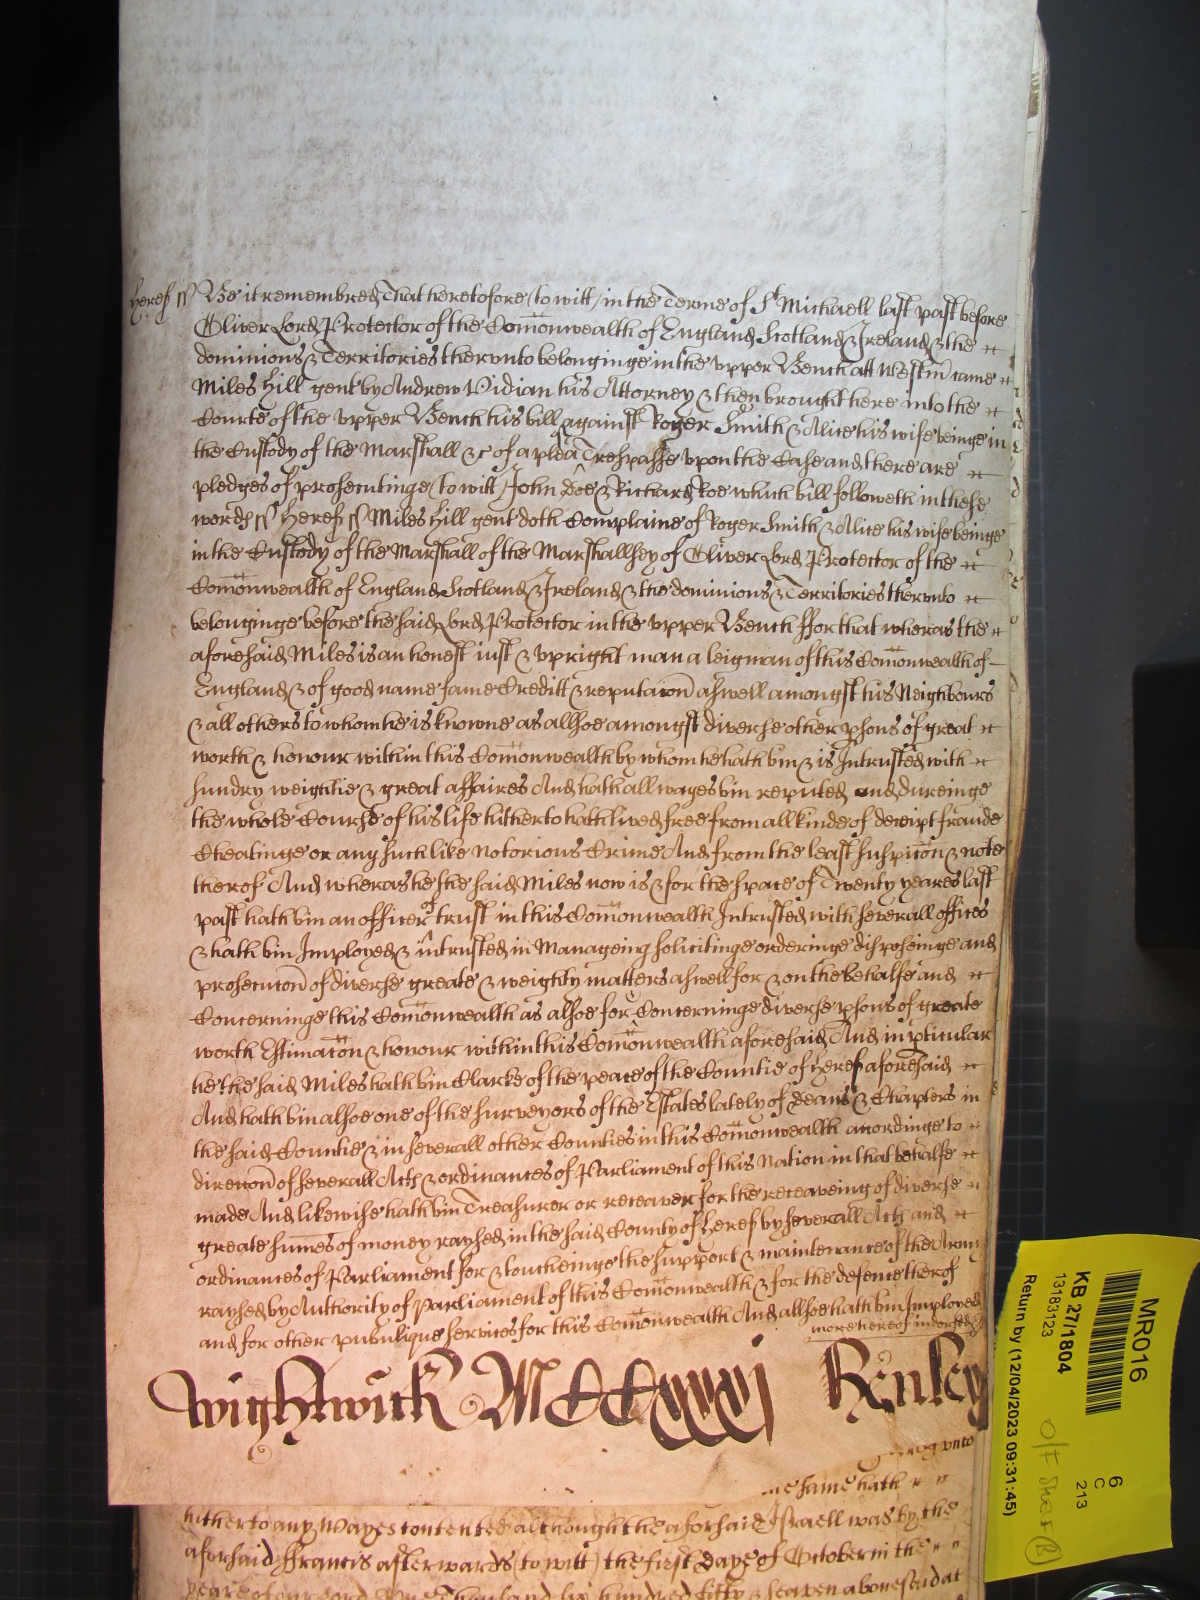 Heref ss Be it remembred That heretofore (to witt) in the Terme of St Michaell last past before
Oliver Lord Protector of the Comonwealth of England Scotland & Ireland & the
dominions & Territories therunto belonginge in the upper Bench att Westm came
Miles Hill gent by Andrew Vidian his Attorney & then brought here into the
Courte of the upper Bench his bill against Roger Smith & Alice his wife beinge in
the Custody of the Marshall &c of a plea Trespasse upon the Case and there are
pledges of prosecutinge (to witt) John Doe & Richard Roe which bill followeth in these
words ss Heref ss Miles Hill gent doth Complaine of Roger Smith & Alice his wife beinge
in the Custody of the Marshall of the Marshallsey of Oliver Lord Protector of the
Comonwealth of England Scotland & Ireland & the dominions & Territories therunto
belonginge before the said Lord Protector in the upper Bench ffor that wheras the
aforesaid Miles is an honest iust & upright man a leigman of this Comonwealth of
England & of good name fame Creditt & reputacon aswell amongst his Neighbours
& all others to whom he is knowne as allsoe amongst diverse other psons of great
worth & honour within this Comonwealth by whom he hath bin & is Intrusted with
sundry weightie & great affaires And hath allwayes bin reputed and dureinge
the whole Course of his life hitherto hath lived free from all kinde of deceipt fraude
Cheatinge or any such like Notorious Crime And from the least suspicon & note
therof And wheras he the said Miles now is & for the space of Twenty yeares last
past hath bin an officer of trust in this Comonwealth Intrusted with severall offices
& hath bin Imployed & intrusted in Manageing solicitinge orderinge disposeinge and
prosecucon of diverse greate & weighty matters aswell for & on the behalfe and
Concerninge this Comonwealth as alsoe for & Concerninge diverse psons of greate
worth Estimacon & honour within this Comonwealth aforesaid And in pticular
he the said Miles hath bin Clarke of the peace of the Countie of Heref aforesaid
And hath bin alsoe one of the surveyors of the Estates lately of Deans & Chapters in
the said Countie & in severall other Counties in this Comonwealth accordinge to
direccon of severall Acts & ordinances of Parliament of this Nation in that behalfe
made And likewise hath bin Treasurer or receaver for the receaveing of diverse
greate sumes of money raysed in the said County of Heref by severall Acts and
ordinances of Parliament for & toucheinge the support & maintenance of the Army
raysed by Authority of Parliament of this Comonwealth & for the defence therof
and for other publique services for this Comonwealth And allsoe hath bin Imployed
more hereof indorsed
Wightwick MCCxxxj Henley
unto
same hath
hitherto any wayes contented although the aforsaid Israell was by the
aforsaid ffrancis afterwards (to witt) the first daye of October in the
yeare of our Lord hundred fifty & seaven abovesaid at
MR016
KB 27/1804
13183123
Return by (12/04/2023 09:31:45)
6
C
213